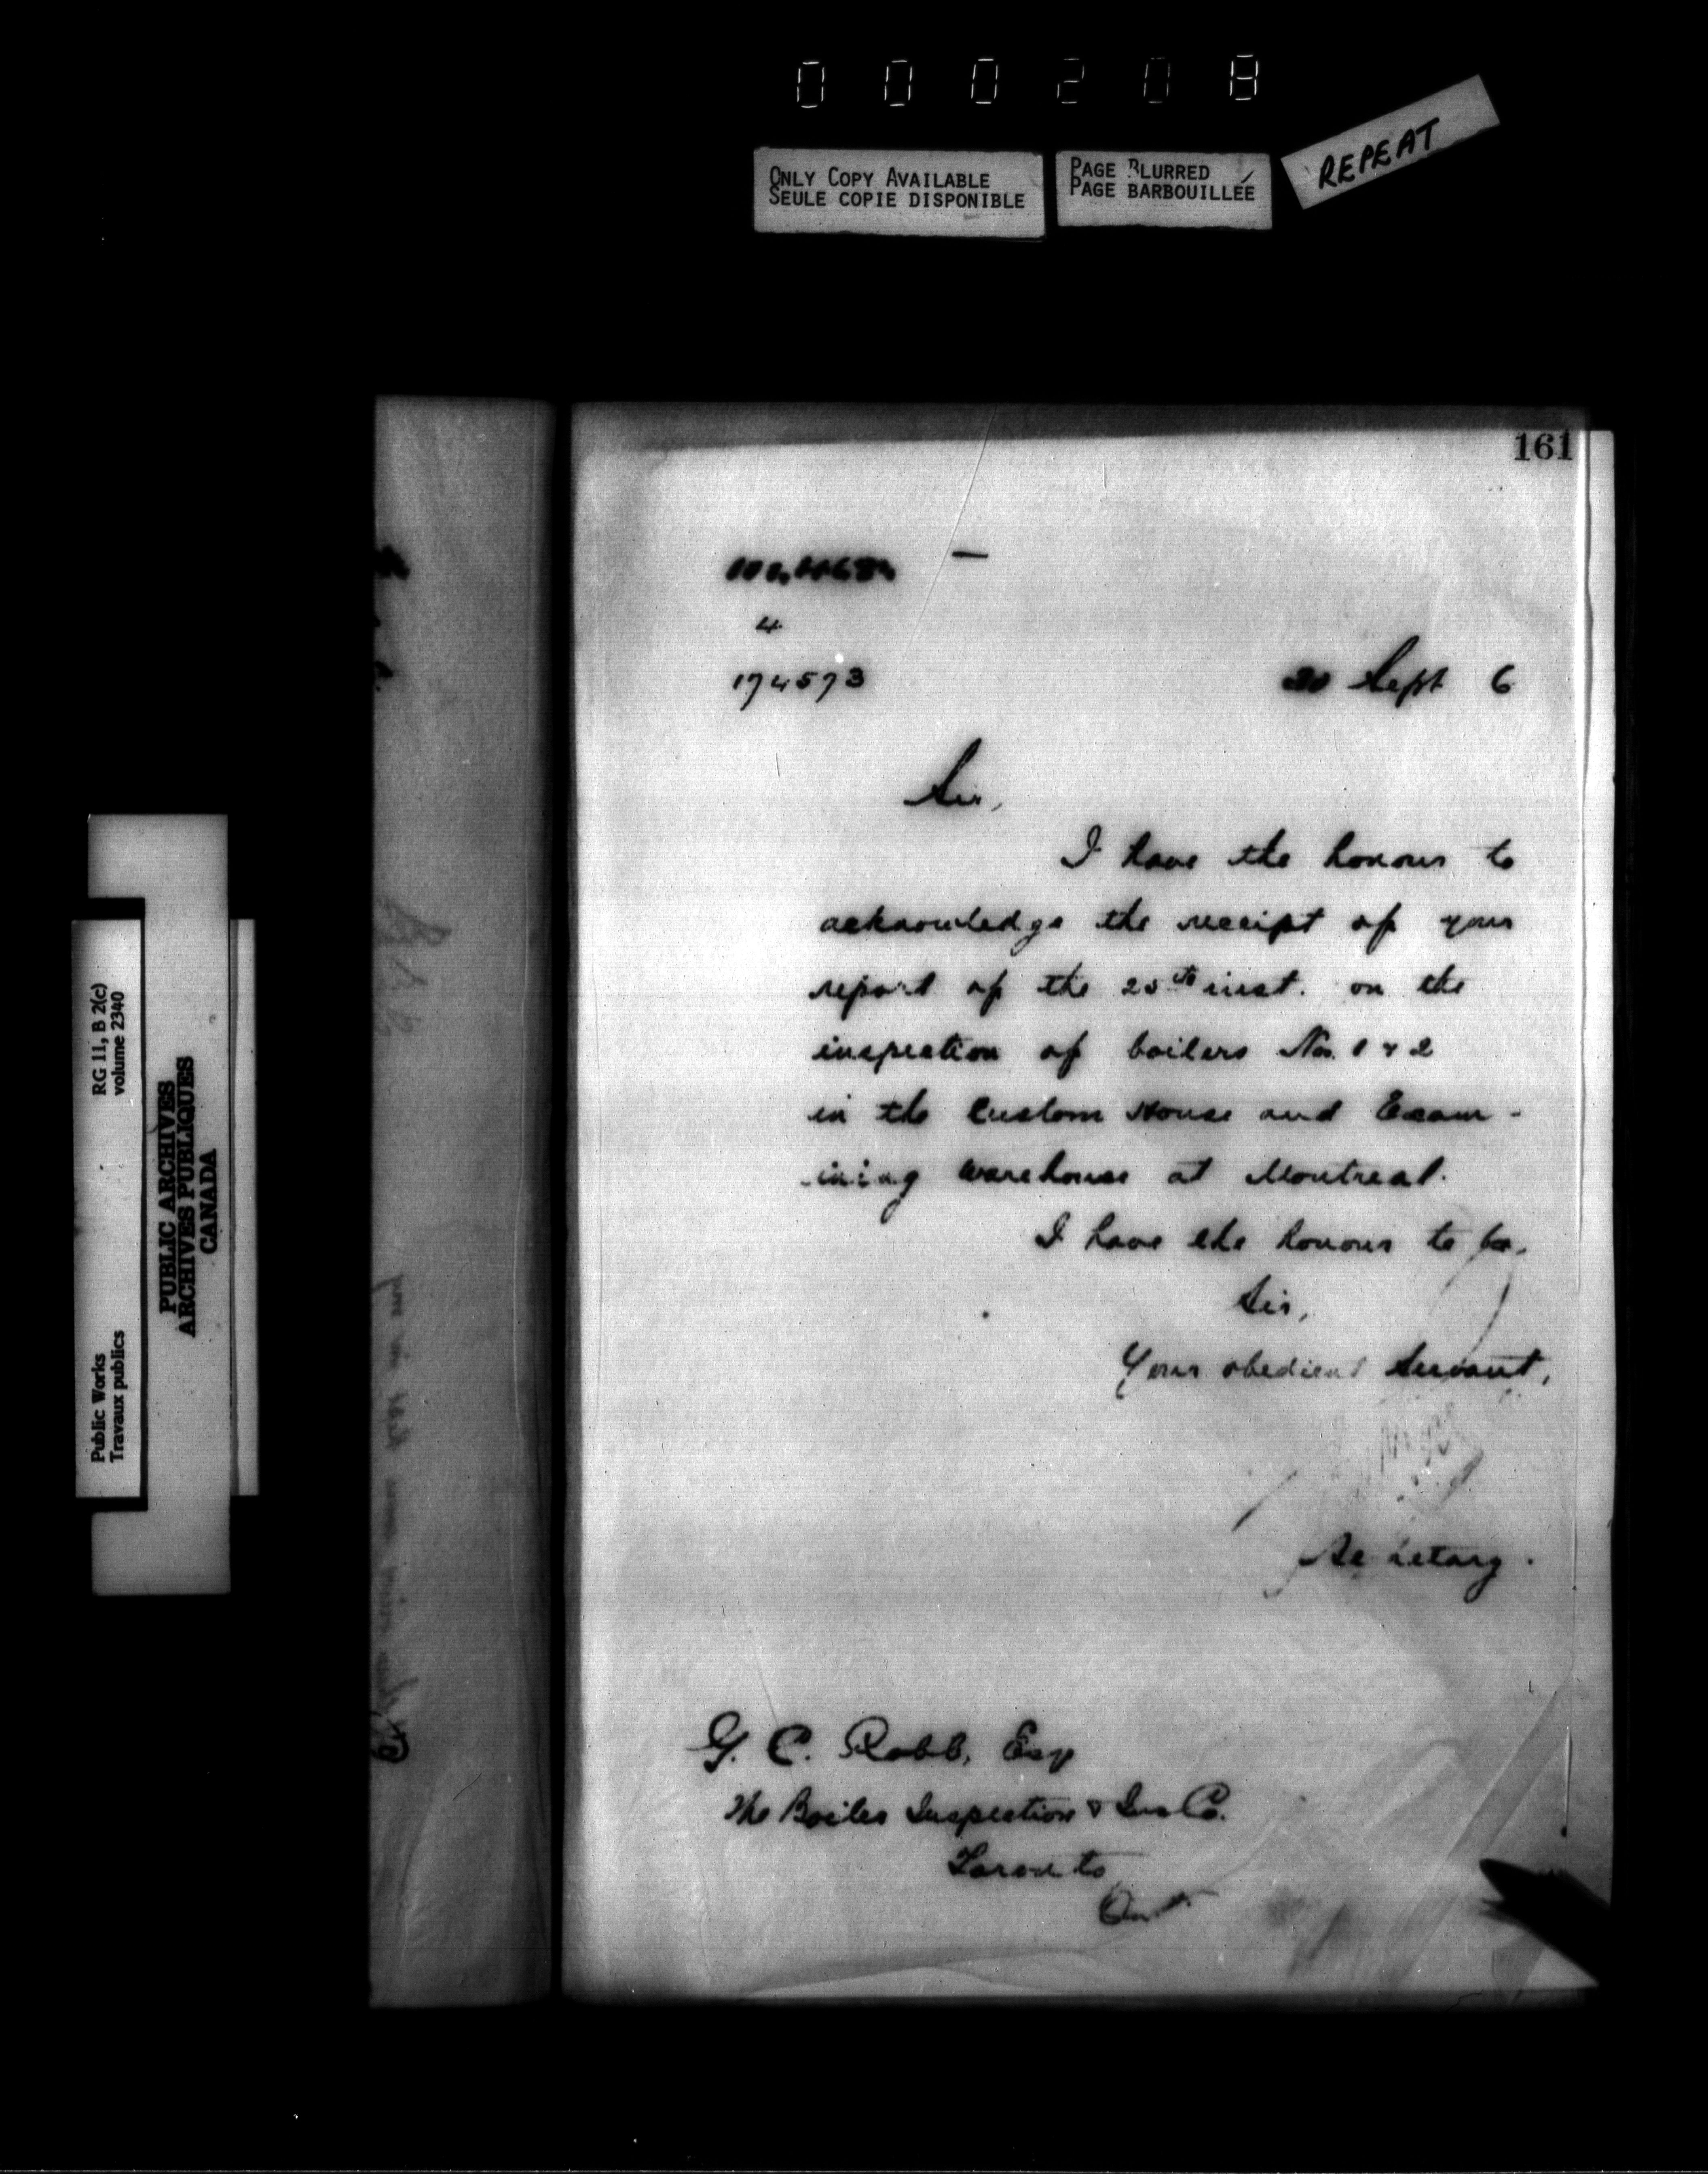 000208
ONLY COPY AVAILABLE
SEULE COPIE DISPONIBLE
PAGE BLURRED
PAGE BARBOUILLÉE
REPEAT
161
4
174573
Sept 6
Sir,
I have the honour to
acknowledge the receipt of your
report of the 25th inst. on the
inspection of boilers Nos. 1 & 2
in the Custom House and Exam-
-ining warehouse at Montreal.
I have the honour to be,
Sir,
Your obedient Servant,
Secretary.
G. C. Robb, Esq
The Boiler Inspection & Ins Co.
Toronto
Ont
RG 11, B 2(c)
volume 2340
Public Works
Travaux publics
PUBLIC ARCHIVES
ARCHIVES PUBLIQUES
CANADA